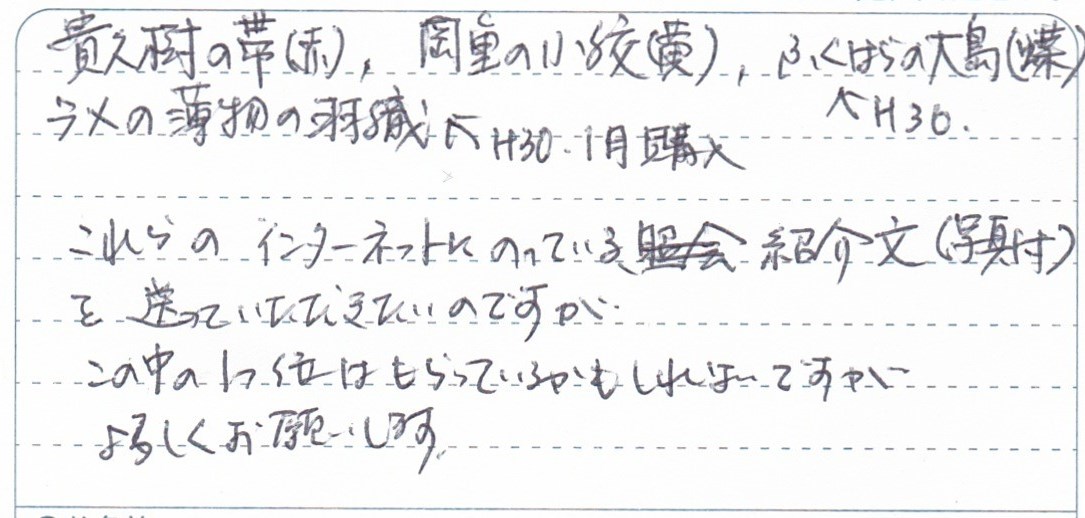 貴久樹の帯(赤), 岡重の小紋(黄), ふくはらの大島(蝶)
ラメの薄物の羽織 ↖H30.1月購入 ↖H30.
これらの インターネットにのっている 照会 紹介文(写真付)
を 送っていただきたいのですが
この中の1つ位はもらっているかもしれないですが
よろしくお願いします